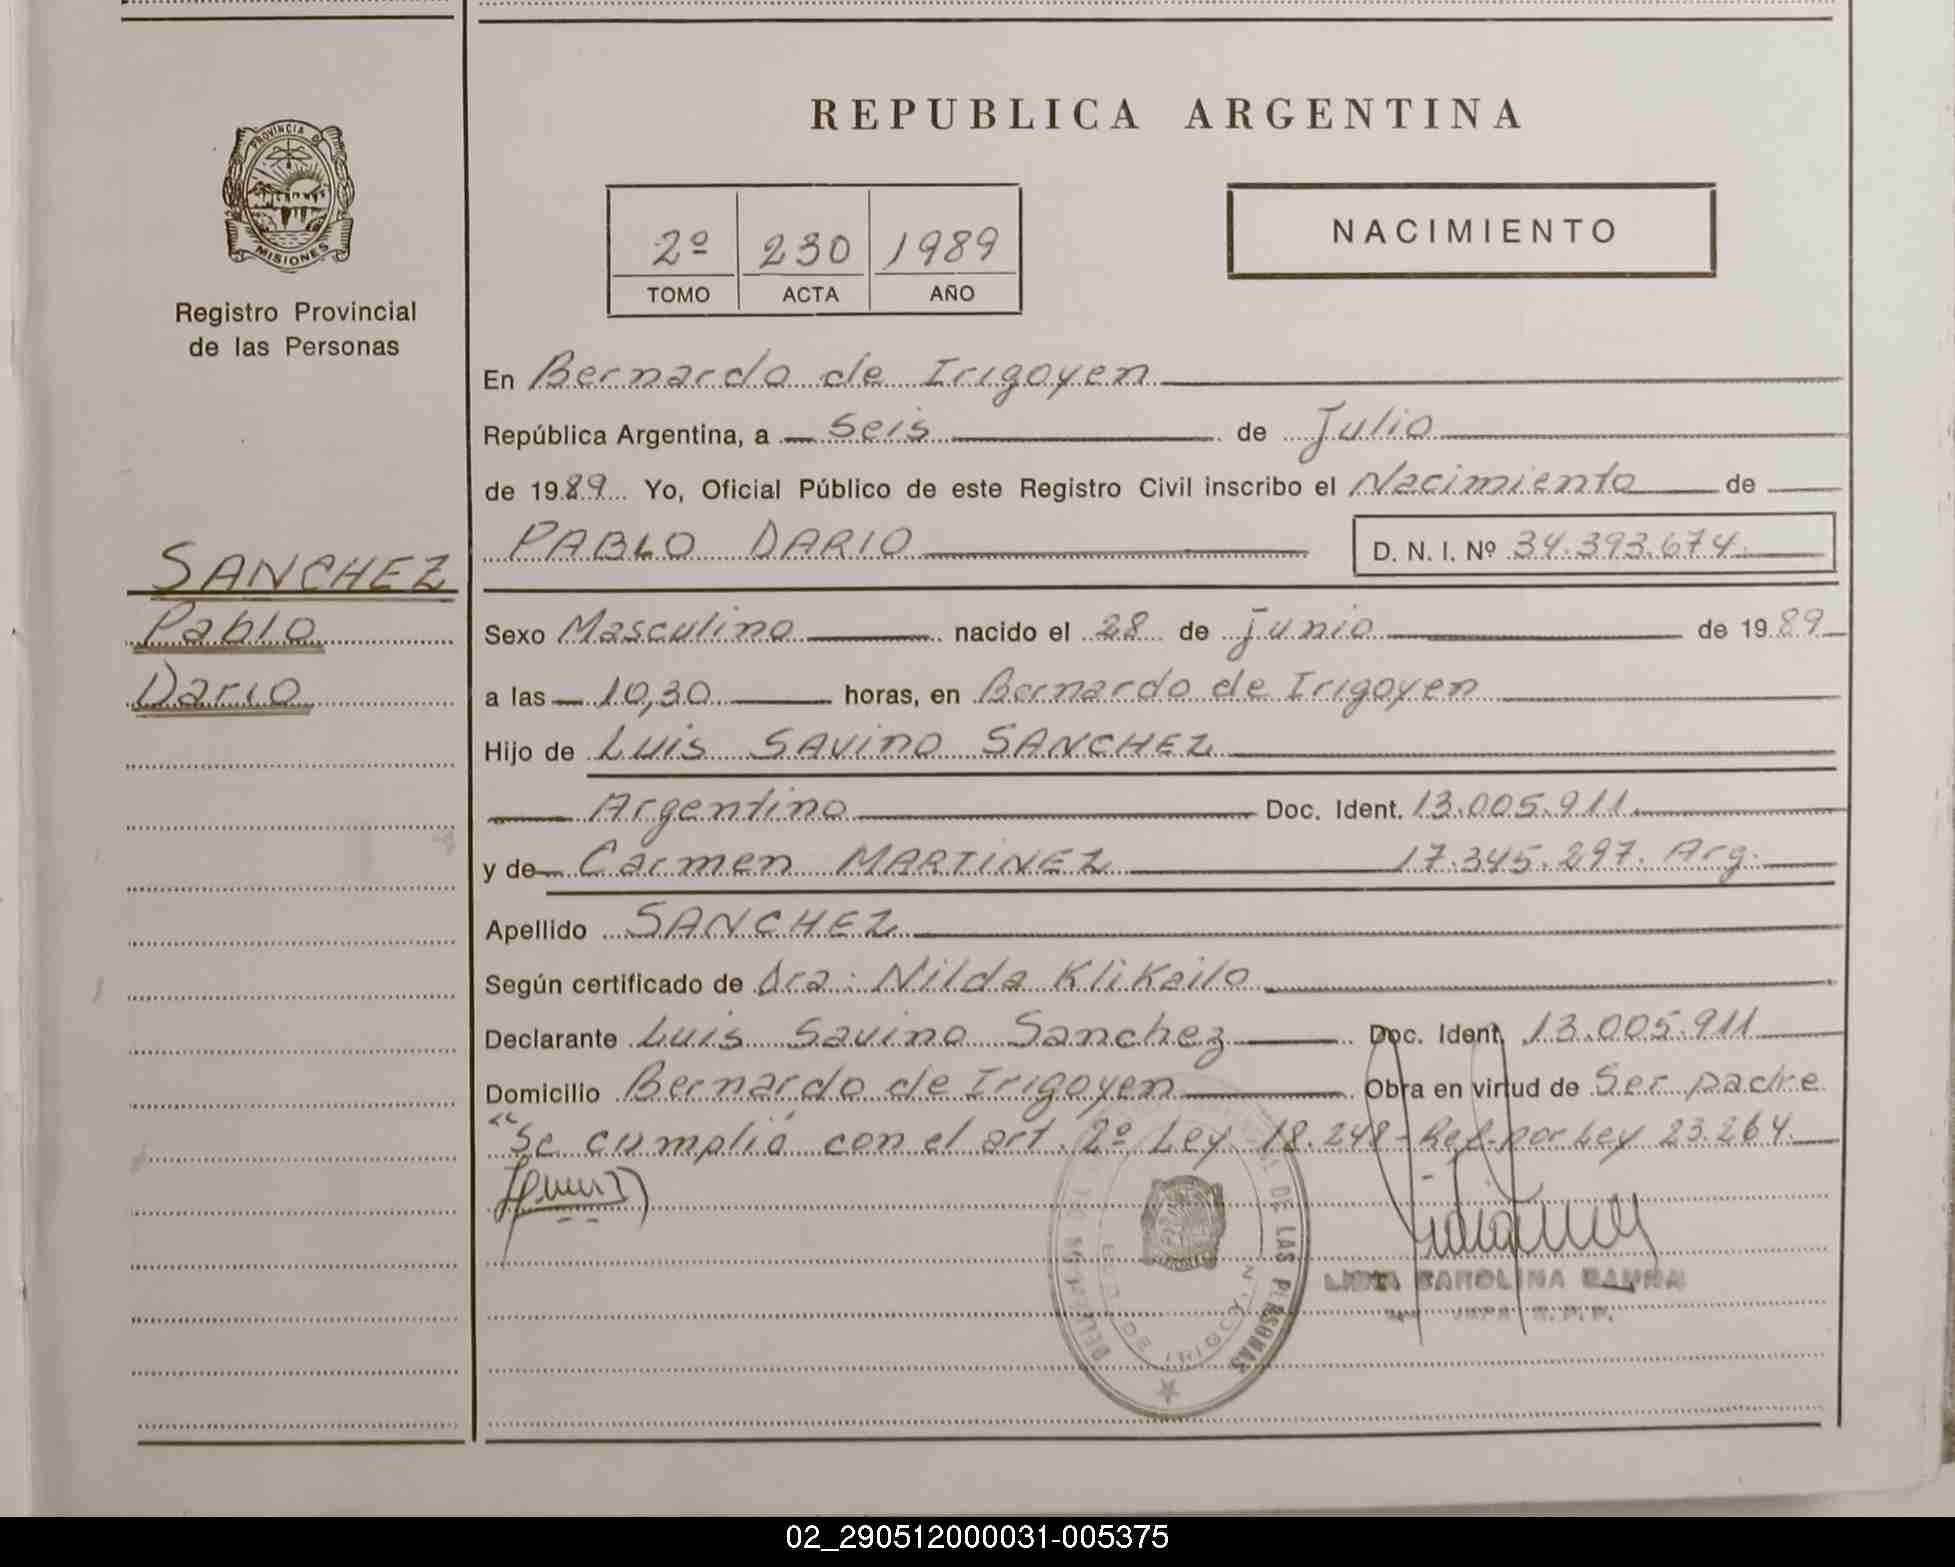 REPUBLICA ARGENTINA
PROVINCIA DE
MISIONES
Registro Provincial
de las Personas
2º 230 1989
TOMO ACTA AÑO
NACIMIENTO
En Bernardo de Irigoyen
República Argentina, a Seis de Julio
de 1989 Yo, Oficial Público de este Registro Civil inscribo el Nacimiento de
PABLO DARIO D. N. I. Nº 34.393.674
SANCHEZ
Pablo
Dario
Sexo Masculino nacido el 28 de junio de 1989
a las 10,30 horas, en Bernardo de Irigoyen
Hijo de Luis SAVINO SANCHEZ
Argentino Doc. Ident. 13.005.911
y de Carmen MARTINEZ 17.345.297. Arg.
Apellido SANCHEZ
Según certificado de Dra: Nilda Klikailo
Declarante Luis Savino Sanchez Doc. Ident. 13.005.911
Domicilio Bernardo de Irigoyen Obra en virtud de Ser padre
"Se cumplió con el art. 2º Ley 18.248- Ref. por Ley 23.264.
DE LAS PERSONAS
CAROLINA
02_290512000031-005375